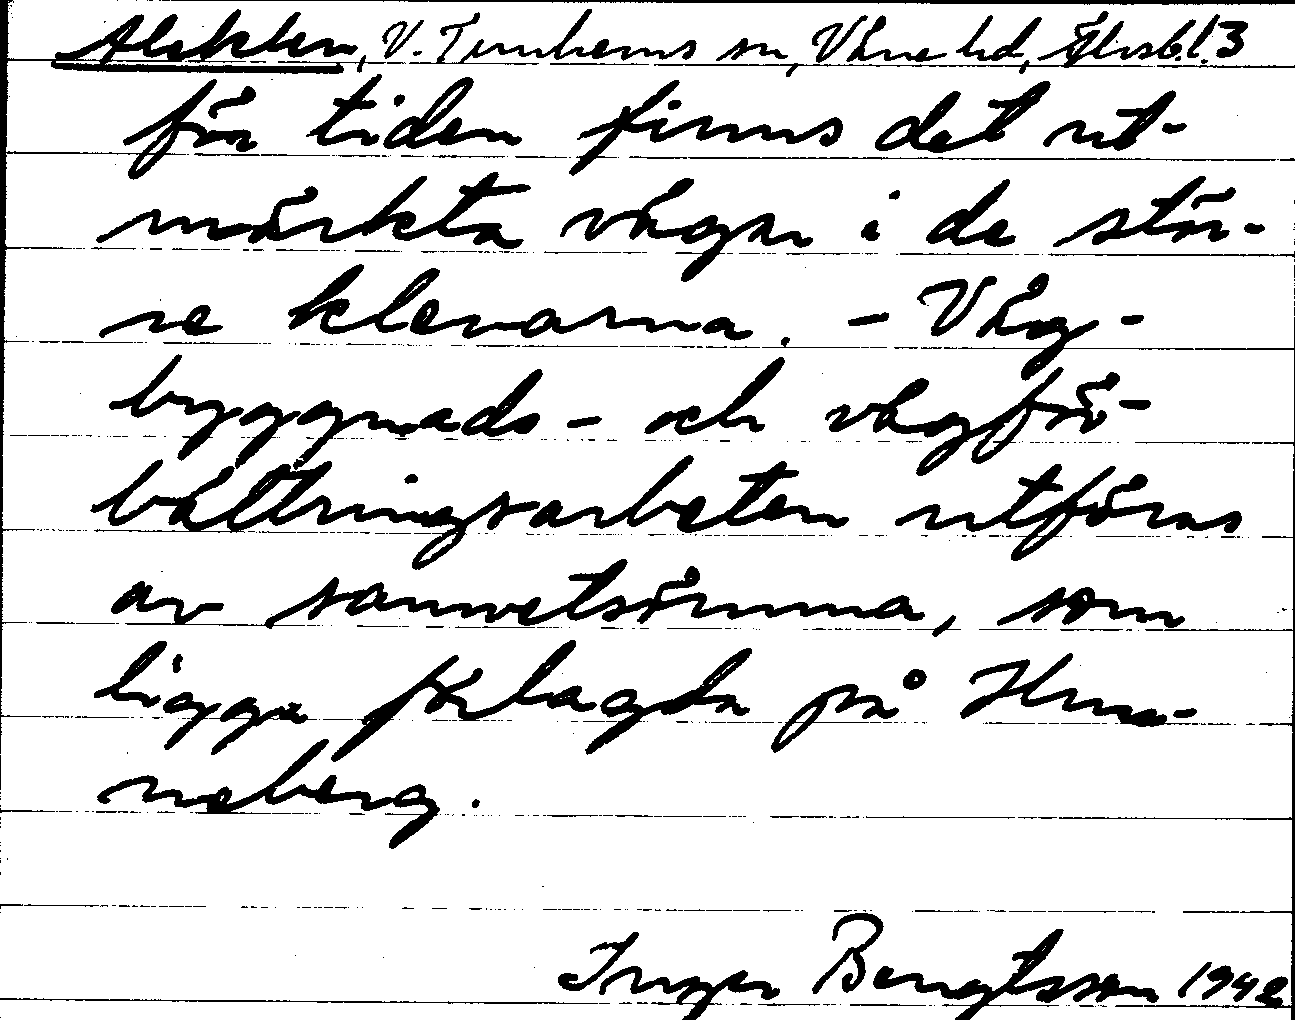 Aleklev, V. Tunhems sn, Väne hd, Älvsb.l. 3
för tiden finns det ut-
märkta vägar i de stör-
re klevarna. - Väg-
byggnads- och vägför-
bättringsarbeten utföras
av samvetsömma, som
ligga förlagda på Hun-
neberg.
Inger Bengtsson 1942